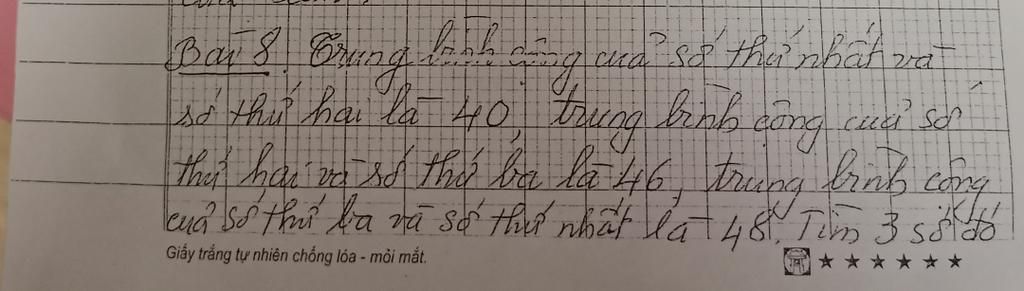 Bài 8. Trung bình cộng của số thứ nhất và
số thứ hai là 40, trung bình cộng của số
thứ hai và số thứ ba là 46, trung bình cộng
của số thứ ba và số thứ nhất là 48. Tìm 3 số đó
Giấy trắng tự nhiên chống lóa - mỏi mắt.